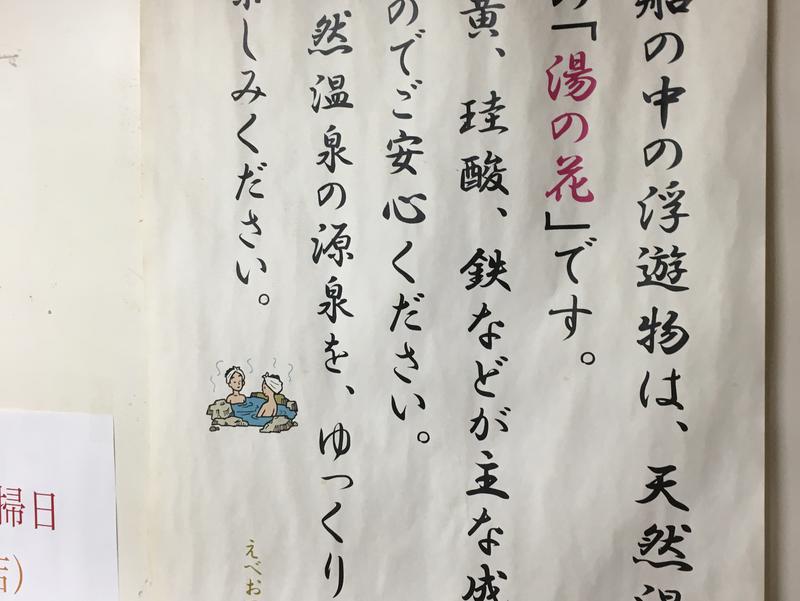 船の中の浮遊物は、天然温
の「湯の花」です。
黄、珪酸、鉄などが主な成
のでご安心ください。
然温泉の源泉を、ゆっくり
しみください。
えべお
掃日